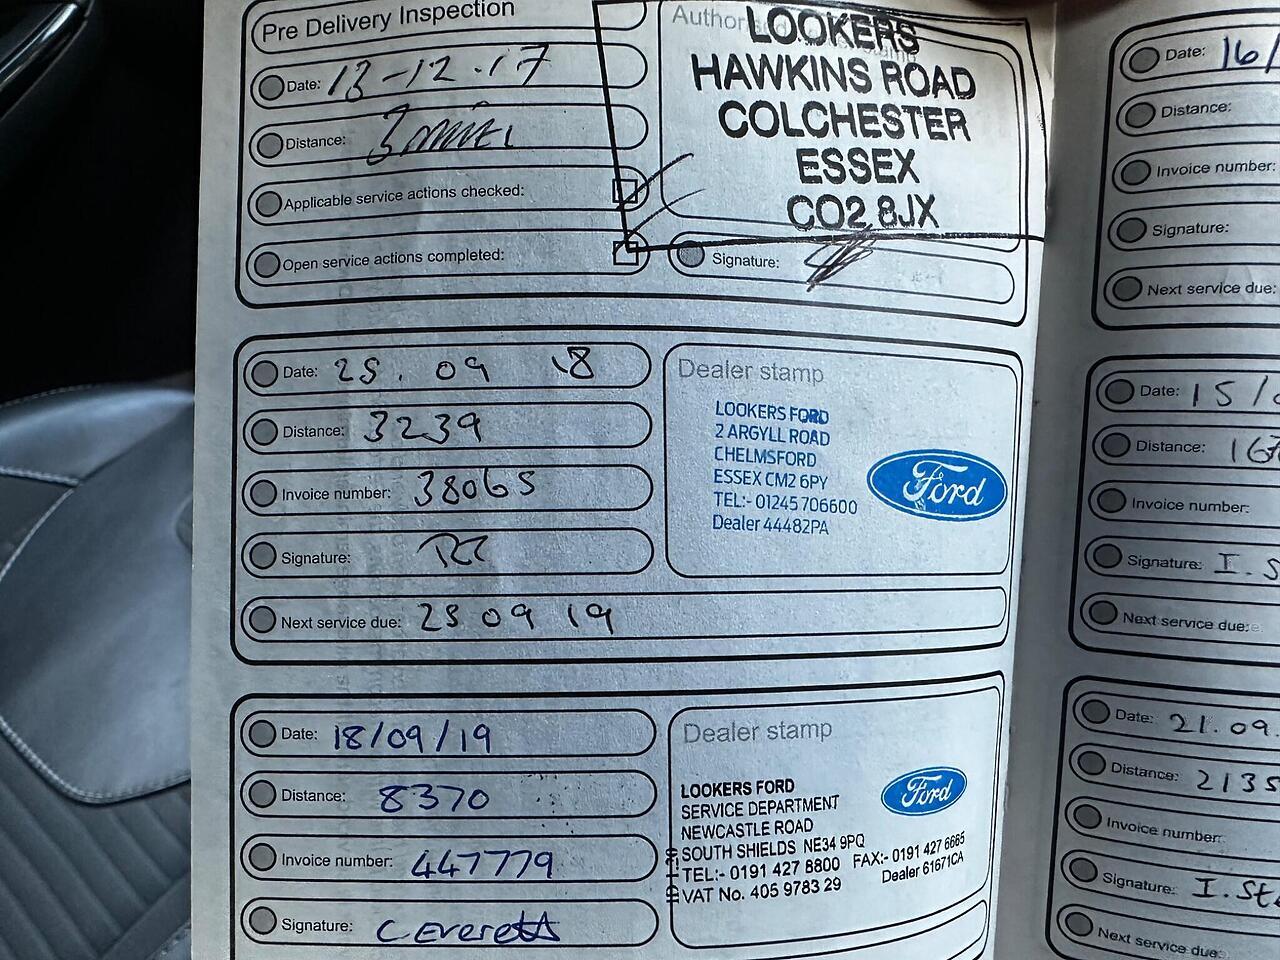 Pre Delivery Inspection
Date: 13-12-17
Distance: 3 miles
Applicable service actions checked:
Open service actions completed:
LOOKERS
HAWKINS ROAD
COLCHESTER
ESSEX
CO2 8JX
Signature:
Date: 25. 09 18
Distance: 3239
Invoice number: 38065
Signature:
Next service due: 25 09 19
Dealer stamp
LOOKERS FORD
2 ARGYLL ROAD
CHELMSFORD
ESSEX CM2 6PY
TEL:- 01245 706600
Dealer 44482PA
Ford
Date: 18/09/19
Distance: 8370
Invoice number: 447779
Signature: C Everett
Dealer stamp
LOOKERS FORD
SERVICE DEPARTMENT
NEWCASTLE ROAD
SOUTH SHIELDS NE34 9PQ
TEL:- 0191 427 8800 FAX:- 0191 427 6665
VAT No. 405 9783 29 Dealer 61671CA
Ford
Date: 16/
Distance:
Invoice number:
Signature:
Next service due:
Date: 15/
Distance: 167
Invoice number:
Signature: I. S
Next service due:
Date: 21.09.
Distance: 2135
Invoice number:
Signature: I. St
Next service due: